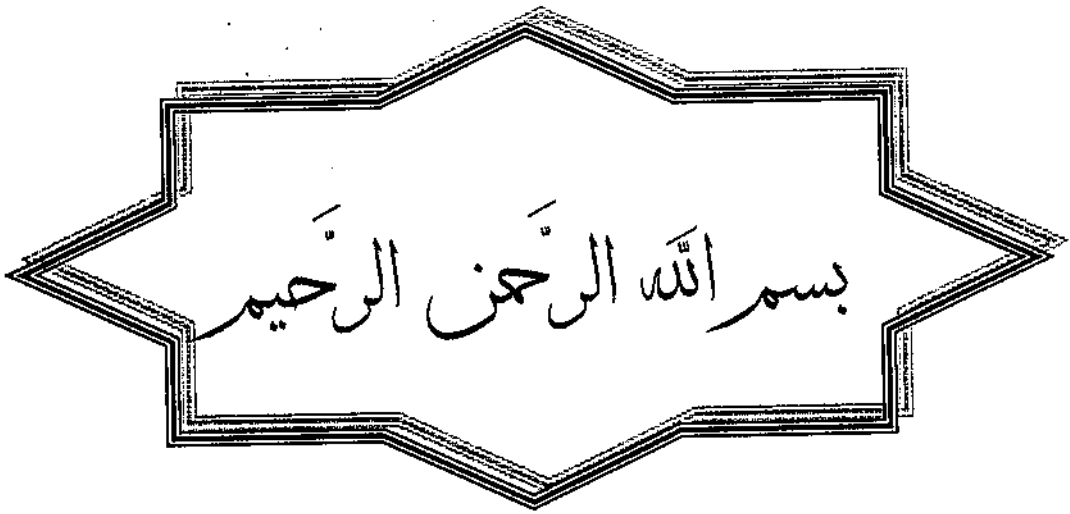 بسم اللّه الرَّحمن الرَّحيم